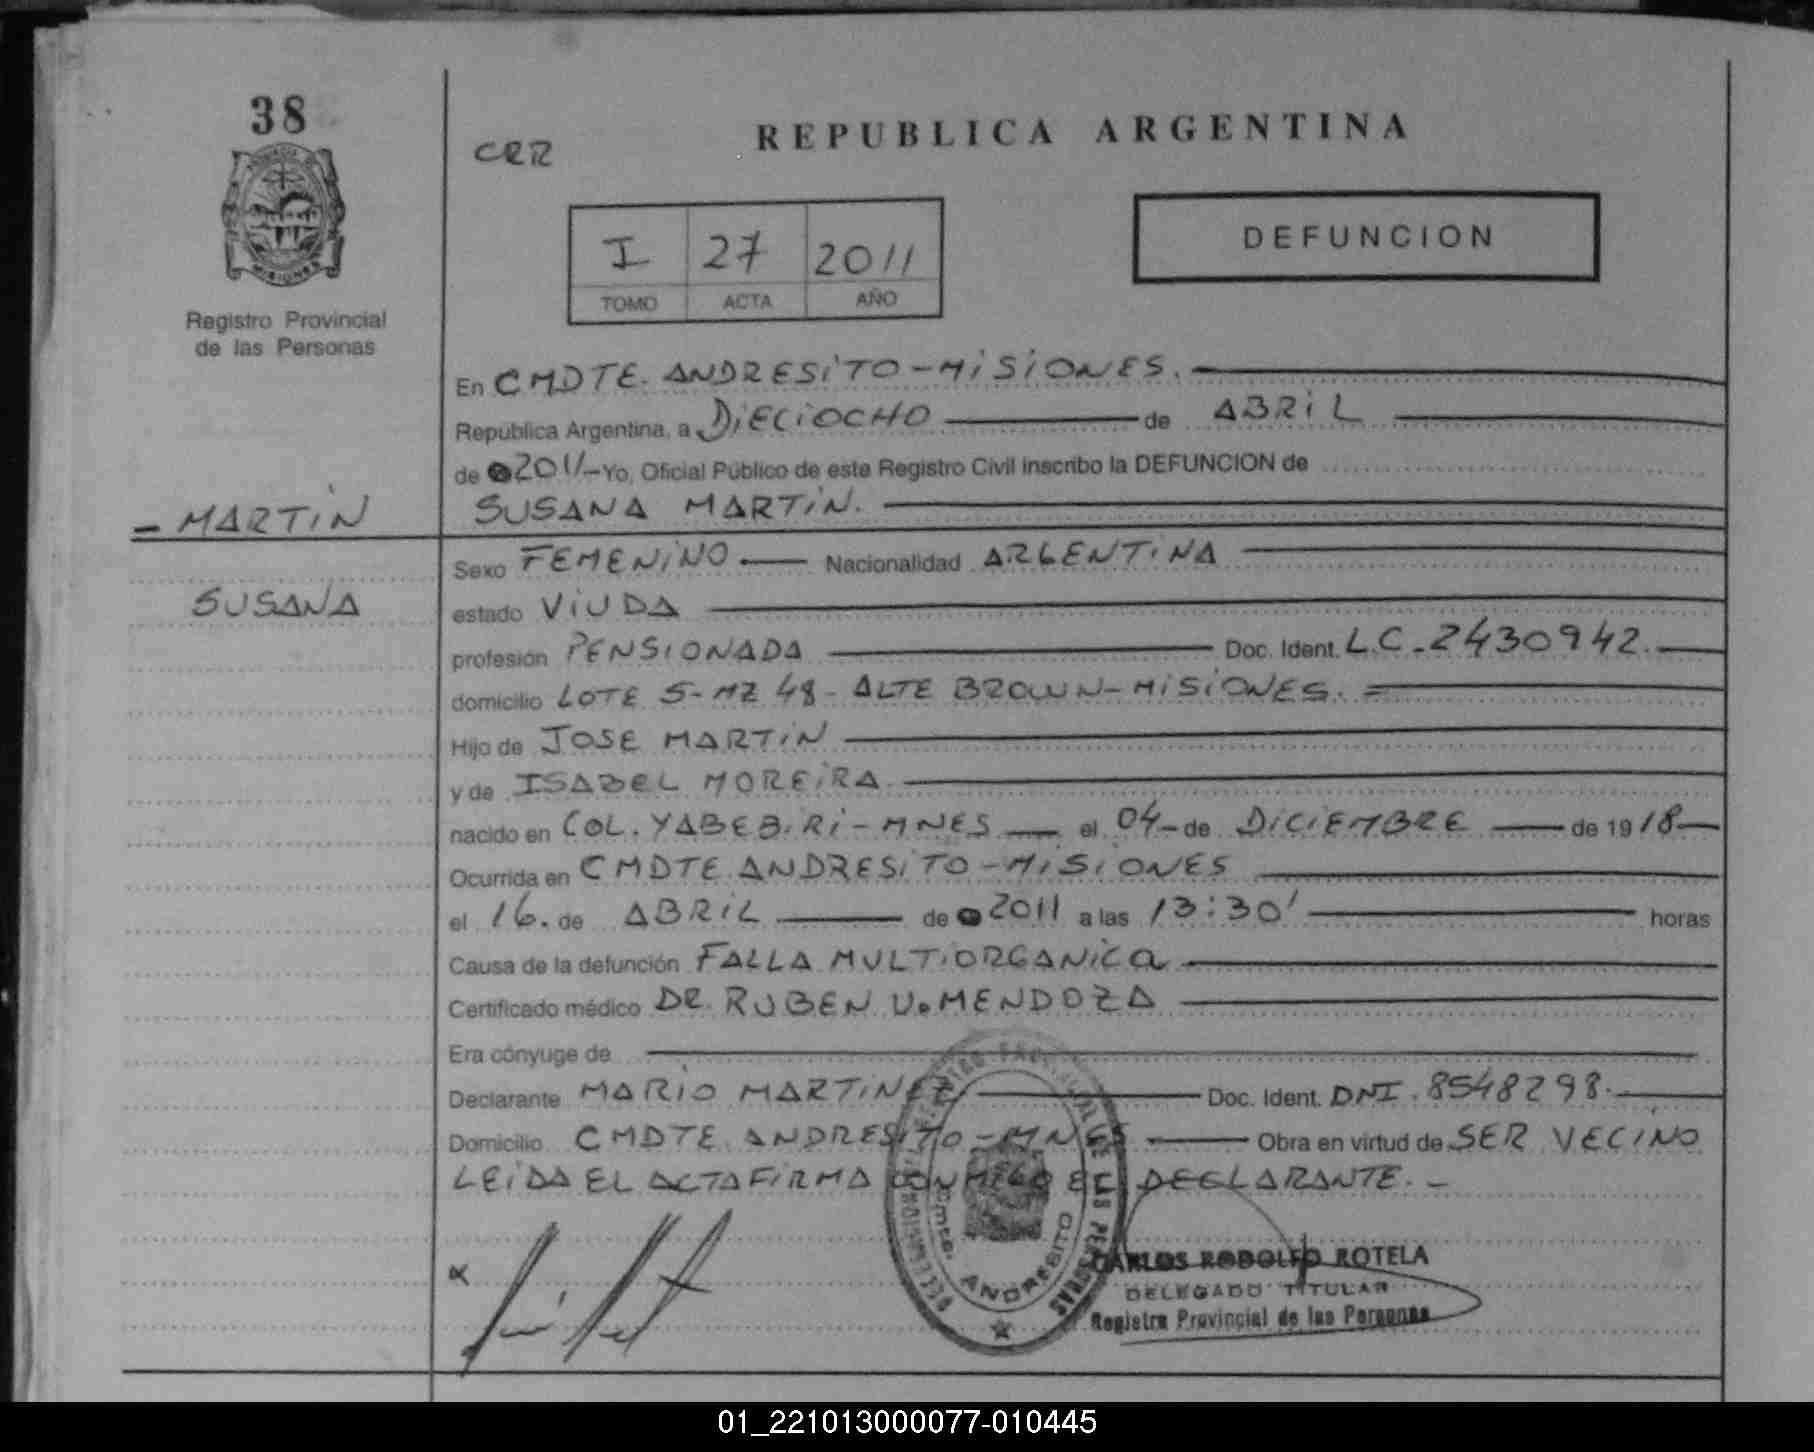 38
MISIONES
Registro Provincial
de las Personas
CRR
REPUBLICA ARGENTINA
I 27 2011
TOMO ACTA AÑO
DEFUNCION
En CMDTE. ANDRESiTO-MiSiONES.
República Argentina, a DiECiOCHO de ABRiL
de 2011-Yo, Oficial Público de este Registro Civil inscribo la DEFUNCION de
- MARTiN
SUSANA MARTiN.
SUSANA
Sexo FEMENiNO Nacionalidad ARGENTiNA
estado ViUDA
profesión PENSIONADA Doc. Ident. L.C.-2430942.
domicilio LOTE 5-MZ 48- ALTE BROWN-MiSiONES.
Hijo de JOSE MARTiN
y de ISABEL MOREiRA
nacido en COL. YABEBiRi-MNES el 04-de DiCiEMBRE de 1918
Ocurrida en CMDTE ANDRESiTO-MiSiONES
el 16. de ABRiL de 2011 a las 13:30' horas
Causa de la defunción FALLA MULTiORGANiCa
Certificado médico DR. RUBEN V. MENDOZA
Era cónyuge de
Declarante MARiO MARTiNEZ Doc. Ident. DNI. 8548298.
Domicilio CMDTE ANDRESiTO-MNES Obra en virtud de SER VECiNO
LEiDA EL ACTA FiRMA CONMiGO EL DECLARANTE.-
DELEGACION REGISTRO PROVINCIAL DE LAS PERSONAS
Cmte. ANDRESITO
CARLOS RODOLFO ROTELA
DELEGADO TITULAR
Registro Provincial de las Personas
01_221013000077-010445